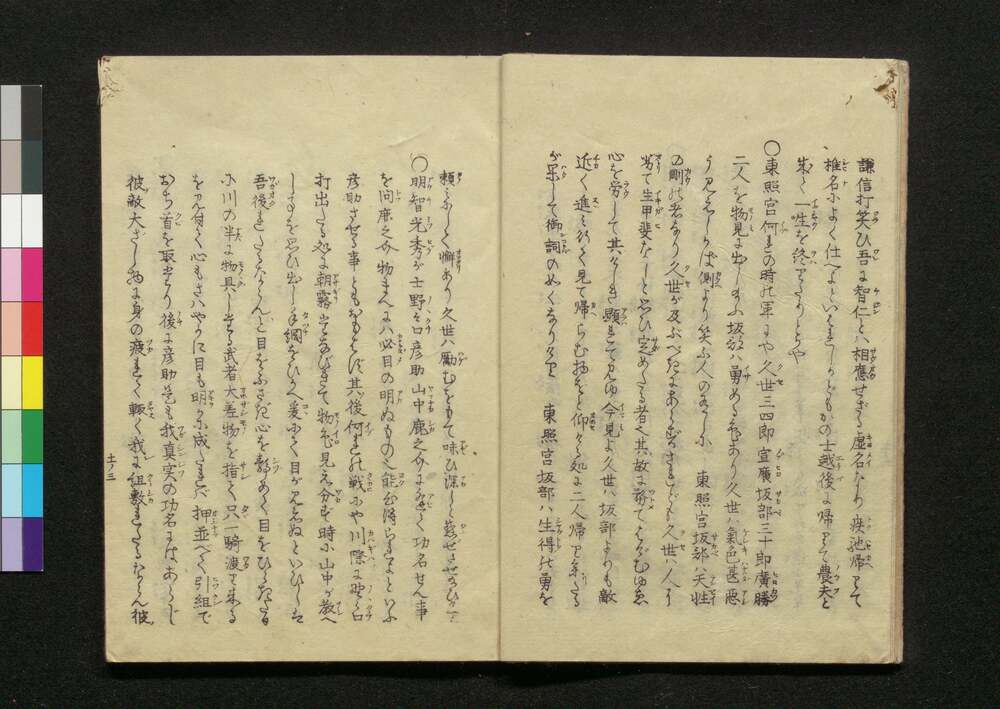 謙信打笑ひ吾に智仁とハ相應せざる虚名なり疾池帰りて
椎名によく仕へよといはれしかどもかの士越後に帰りて農夫と
成て一生を終りけりとぞ
〇東照宮何れの時の軍にや久世三四郎宣廣坂部三十郎廣勝
二人を物見に出し玉ふ坂部ハ勇めるけしきあり久世ハ氣色甚悪
う見えしかば側より笑ふ人のありしに 東照宮坂部ハ天性
の剛の者なり久世が及ぶべきにあらずされども久世ハ人に
劣て生甲斐なしと思ひ定めたる者也其故に務てはげむゆゑ
心を労して其けしき顕れて見ゆ今見よ久世ハ坂部よりも敵
近く進み行て見て帰らむ物をと仰ける処に二人帰り来たる
が果して御詞のめくなりけり 東照宮坂部ハ生得の勇を
頼ミふして懈あり久世ハ勵むをもて味ひ深しと被せさせ玉ひ
〇明智光秀が士野々口彦助山中鹿之介に逢て功名せん事
を問鹿之介物まへにハ必目の明ぬもの也能心得られよといふ
彦助させる事ともおもはず其後何れの戦にや川際に野々口
打出たる処に朝霧たなびきて物色見え分ず時に山中が教へ
し事を思ひ出し手綱をひかへ爰にて目が見えぬといひしハ
吾後れたるならんと目をふさぎ心を静めて目をひらきたる
に川の半に物具したる武者大差物を指て只一騎渡り来る
を見付て心もさハやかに目も明かに成たれバ押並べて引組で
おち首を取たり後に彦助是も我真実の功名にはあらじ
彼敵大さし物に身の疲れて輙く我に組敷れたるならん彼
土ノ三